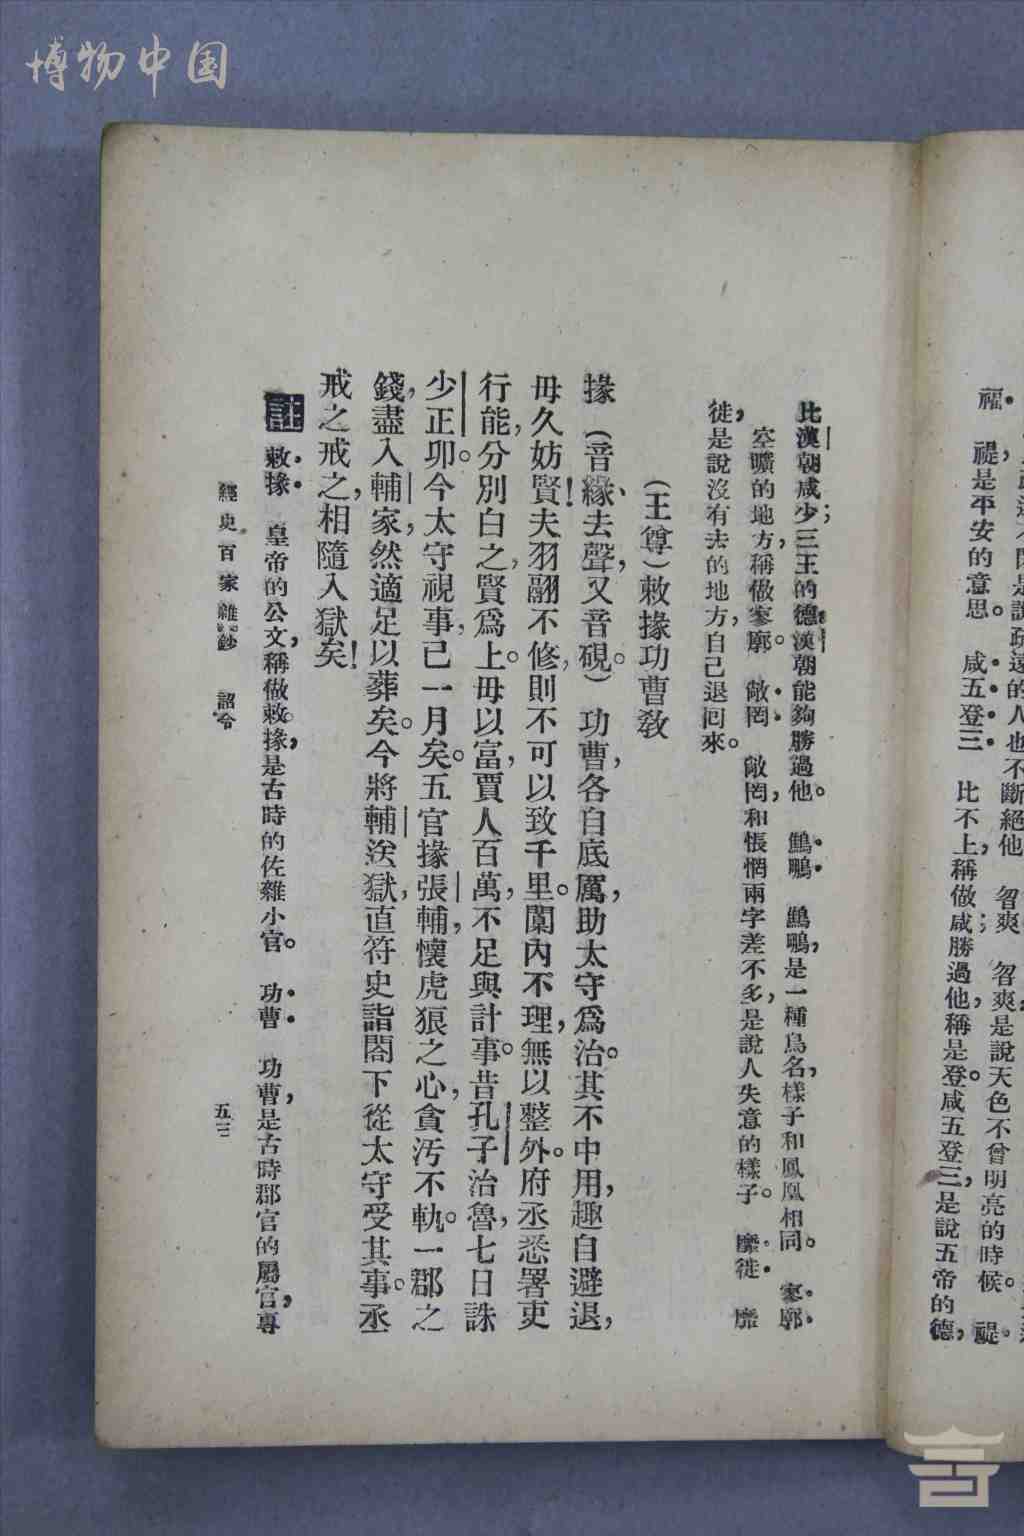 博物中国
福 禔是平安的意思。 咸五登三 比不上，稱做咸；勝過他，稱是登。咸五登三，是說五帝的德，
比漢朝咸少；三王的德，漢朝能夠勝過他。 鷦鵬 鷦鵬，是一種鳥名，樣子和鳳凰相同。 寥廓
空曠的地方，稱做寥廓。 敞罔 敞罔，和悵惘兩字差不多，是說人失意的樣子。 靡徙 靡
徙，是說沒有去的地方，自己退回來。
（王尊）敕掾功曹教
掾（音緣、去聲，又音硯。） 功曹，各自底厲，助太守爲治。其不中用，趣自避退，
毋久妨賢！夫羽翮不修，則不可以致千里。闑內不理，無以整外。府丞悉署吏
行能，分別白之，賢爲上。毋以富，賈人百萬，不足與計事。昔孔子治魯，七日誅
少正卯。今太守視事，已一月矣。五官掾張輔，懷虎狼之心，貪汚不軌。一郡之
錢，盡入輔家，然適足以葬矣。今將輔送獄，直符史詣閣下，從太守受其事。丞
戒之戒之，相隨入獄矣！
註 敕掾 皇帝的公文，稱做敕。掾，是古時的佐雜小官。 功曹 功曹，是古時郡官的屬官，專
經史百家雜鈔 詔令
五三